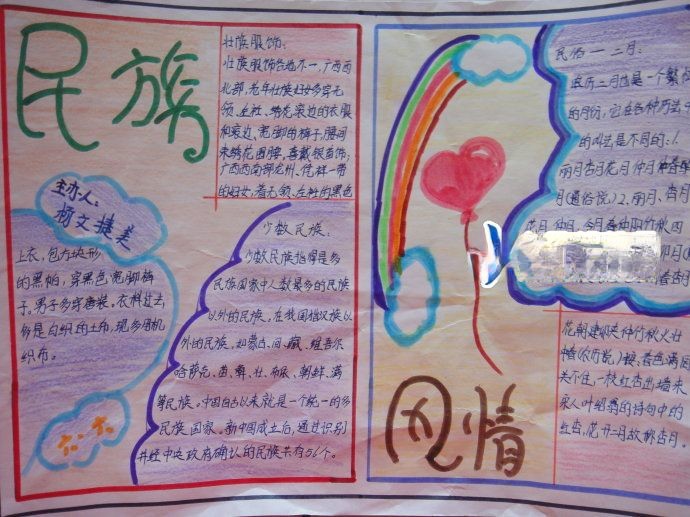 民族
壮族服饰:
壮族服饰各地不一,广西西
北部,老年壮族妇女多穿无
领、左衽、绣花滚边的衣服
和滚边、宽脚的裤子,腰间
束绣花围腰,喜戴银首饰;
广西西南部龙州、凭祥一带
的妇女,着无领、左衽的黑色
主办人:
杨文捷美
上衣,包方块形
的黑帕,穿黑色宽脚裤
子。男子多穿唐装。衣料过去
多是自织的土布,现多用机
织布。
少数民族:
少数民族指得是多
民族国家中人数最多的民族
以外的民族。在我国指汉族以
外的民族,如蒙古、回、藏、维吾尔
哈萨克、苗、彝、壮、布依、朝鲜、满
等民族。中国自古以来就是一个统一的多
民族国家。新中国成立后,通过识别
并经中央政府确认的民族共有56个。
六一
风情
民俗一二月:
农历二月也是一个繁
的月份,它在各种历法
的叫法是不同的:1.
丽月杏月花月仲月仲春
月(通俗说)2、丽月、杏月
花月仲阳竹秋四
花朝建卯夹仲竹秋火壮
关不住,一枝红杏出墙来
采入叶绍翁的诗句中的
红杏,花开二月故称杏月。